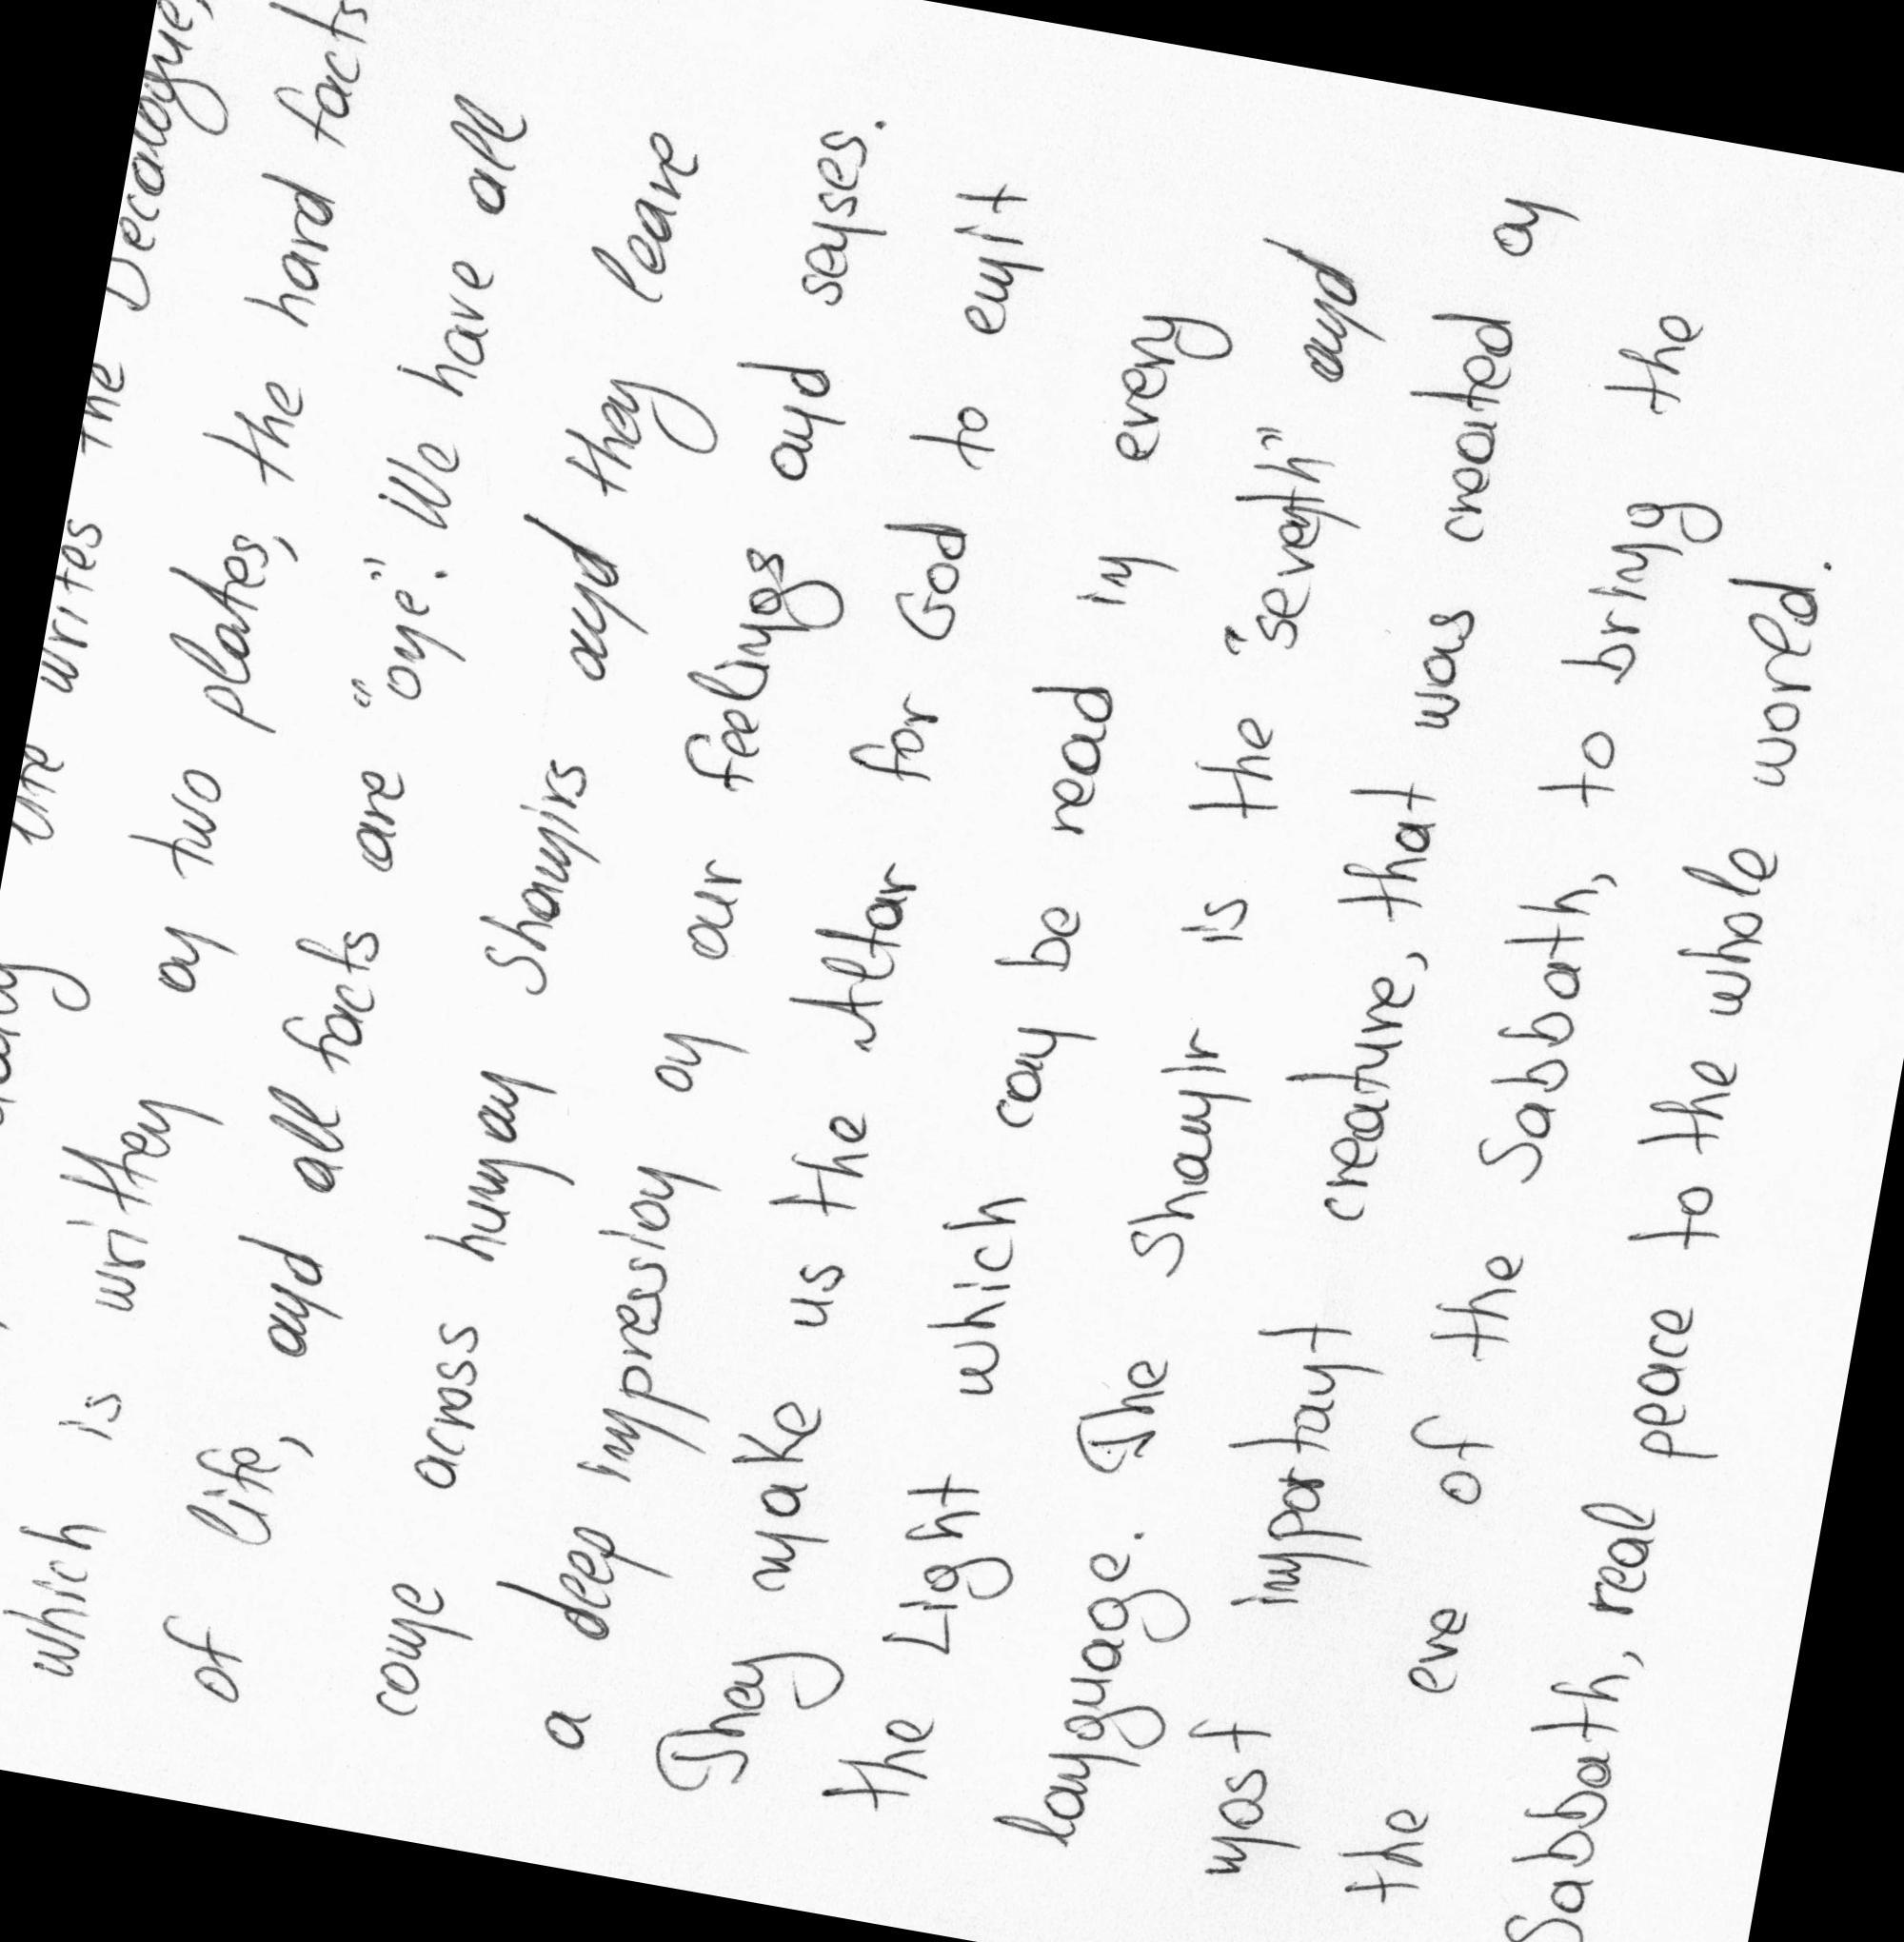 life writes the Decalogue,
which is written on two plates, the hard facts
of life, and all facts are "one". We have all
come across human Shamirs and they leave
a deep impression on our feelings and senses.
They make us the Altar for God to emit
the Light which can be read in every
language. The Shamir is the "seventh" and
most important creature, that was created on
the eve of the Sabbath, to bring the
Sabbath, real peace to the whole world.